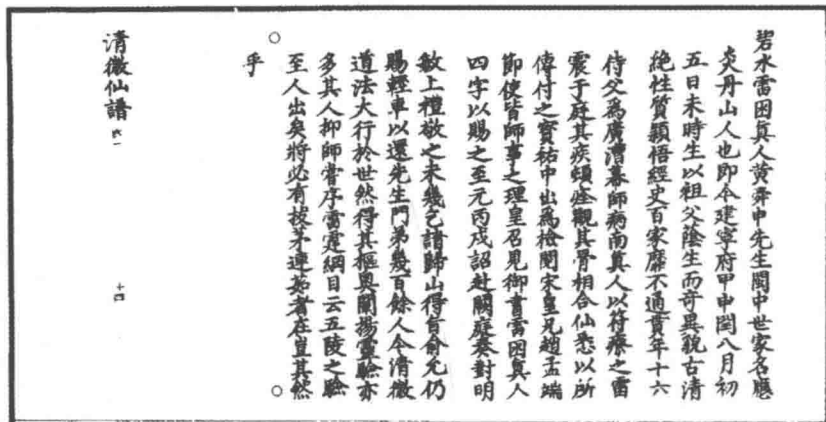 碧水雷囦真人黃舜申先生閩中世家名應
炎丹山人也即今建寧府甲申閏八月初
五日未時生以祖父蔭生而奇異貌古清
絶性質穎悟經史百家靡不通貫年十六
侍父為廣漕幕師病南真人以符療之雷
震于庭其疾頓痊觀其骨相合仙悉以所
傳付之寶祐中出為檢閱宋皇兄趙孟端
節使皆師事之理皇召見御書雷囦真人
四字以賜之至元丙戌詔赴闕庭奏對明
敏上禮敬之未幾乞請歸山得旨俞允仍
賜輕車以還先生門弟幾百餘人今清微
道法大行於世然得其樞奧闡揚靈驗亦
多其人抑師嘗序雷霆綱目云五陵之驗
至人出矣將必有拔茅連茹者在豈其然
乎
清微仙譜
十四